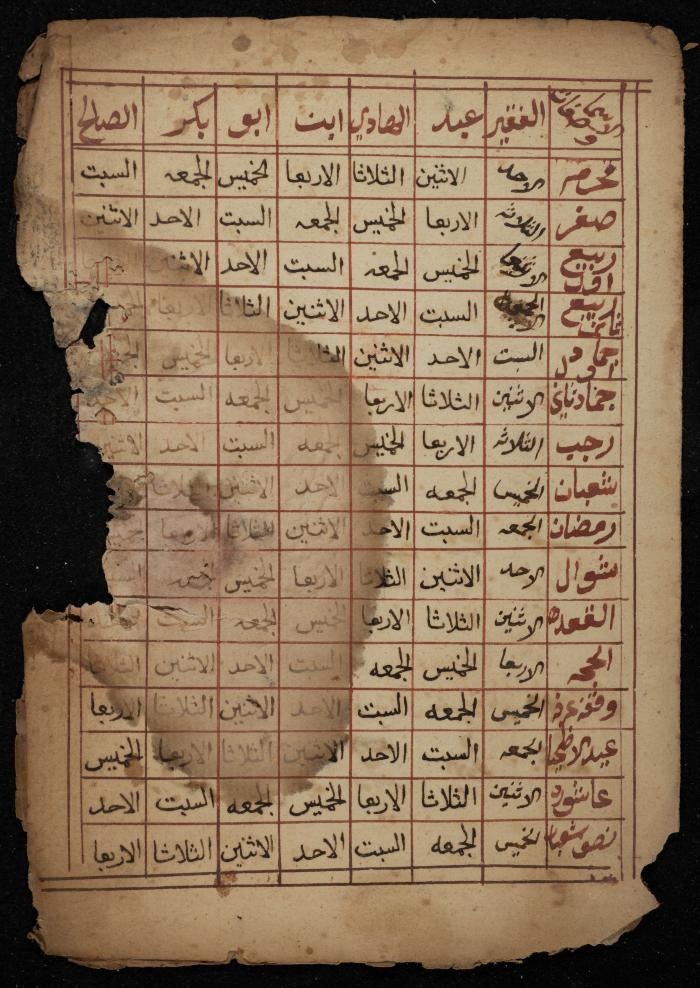 الفقير عبد الهادي ابن ابو بكر الصالح
محرم الاحد الاثنين الثلاثا الاربعا الخميس الجمعه السبت
صفر الثلاثه الاربعا الخميس الجمعه السبت الاحد الاثنين
ربيع اول الاربعا الخميس الجمعه السبت الاحد الاثنين
ربيع ثاني الجمعة السبت الاحد الاثنين الثلاثا الاربعا
جماد ول السبت الاحد الاثنين الثلاثا الاربعا الخميس
جمادثاني الاثنين الثلاثا الاربعا الخميس الجمعه السبت الاحد
رجب الثلاثه الاربعا الخميس الجمعه السبت الاحد الاثنين
شعبان الخميس الجمعه السبت الاحد الاثنين الثلاثا
رمضان الجمعه السبت الاحد الاثنين الثلاثا الاربعا
شوال الاحد الاثنين الثلاثا الاربعا الخميس الجمعه
القعده الاثنين الثلاثا الاربعا الخميس الجمعه السبت
الحجه الاربعا الخميس الجمعه السبت الاحد الاثنين الثلاثا
وقفه عرفه الخميس الجمعه السبت الاحد الاثنين الثلاثا الاربعا
عيد الاضحيا الجمعه السبت الاحد الاثنين الثلاثا الاربعا الخميس
عاشوره الاثنين الثلاثا الاربعا الخميس الجمعه السبت الاحد
نصف شعبان الخميس الجمعه السبت الاحد الاثنين الثلاثا الاربعا